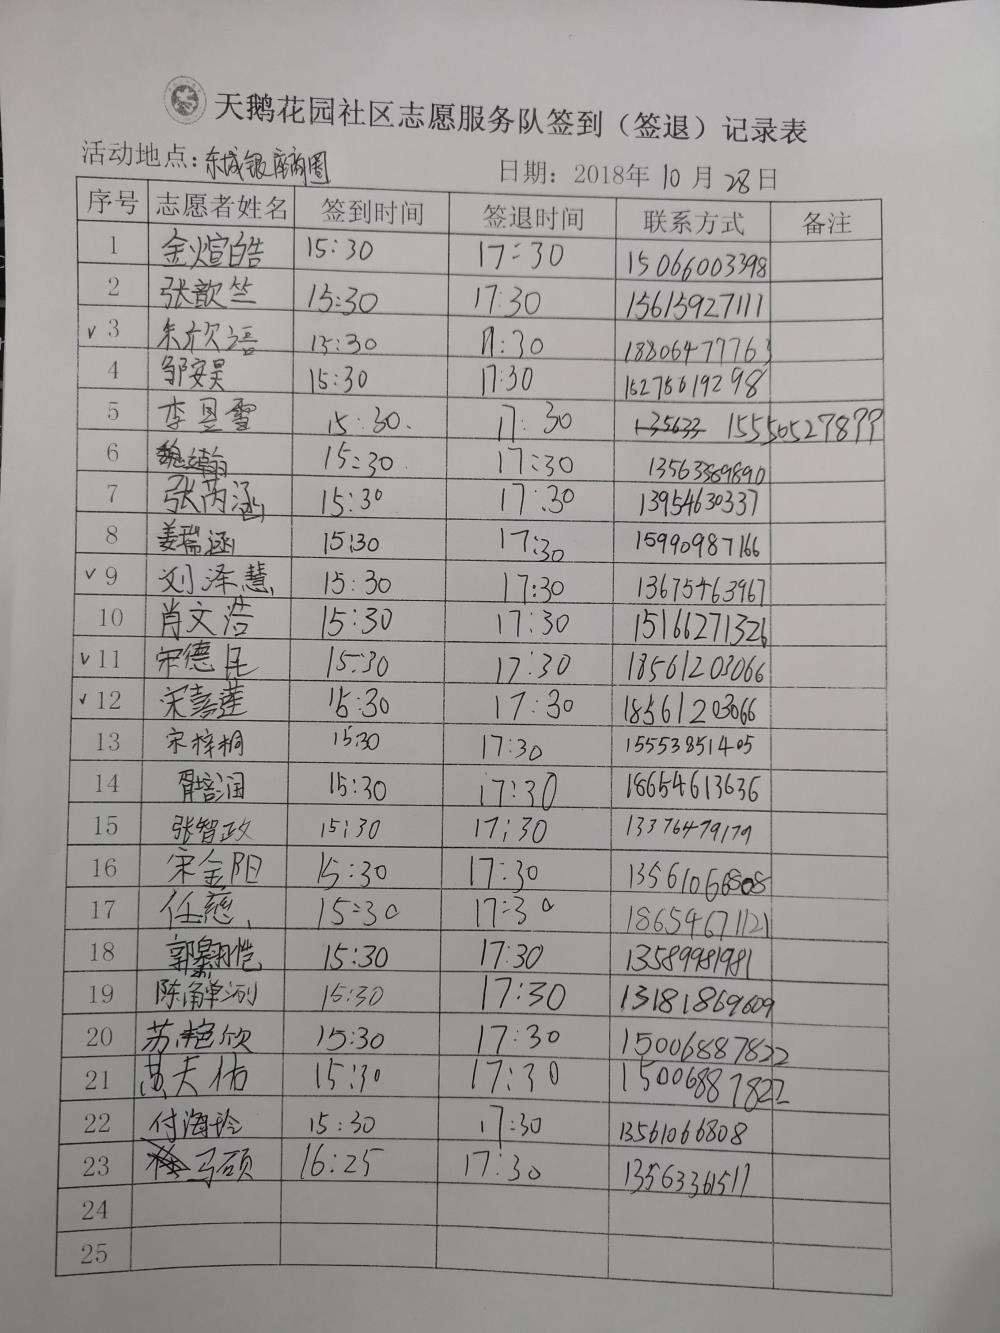 天鹅花园社区志愿服务队签到（签退）记录表
活动地点：东城银座商圈 日期：2018年10月28日
序号 志愿者姓名 签到时间 签退时间 联系方式 备注
1 金煊皓 15:30 17:30 15066003398
2 张歆竺 15:30 17:30 15615927111
√ 3 朱欣语 15:30 17:30 18806477763
4 邹安昊 15:30 17:30 15275619298
5 李昱雪 15:30. 17:30 135633
6 15:30 17:30 13563389890
7 张芮涵 15:30 17:30 13954630337
8 姜瑞涵 15:30 17:30 15990987166
√ 9 刘泽慧 15:30 17:30 13675463967
10 肖文浩 15:30 17:30 15166271326
√ 11 宋德民 15:30 17:30 18561203066
√ 12 宋嘉莲 15:30 17:30 18561203066
13 宋梓桐 15:30 17:30 15553851405
14 胥培润 15:30 17:30 18654613636
15 张智政 15:30 17:30 13376479179
16 宋金阳 15:30 17:30 13561066808
17 任慈 15:30 17:30 18654671121
18 15:30 17:30 13589981981
19 15:30 17:30 13181869609
20 15:30 17:30 15006887822
21 15:30 17:30 15006887822
22 付海玲 15:30 17:30 13561066808
23 马硕 16:25 17:30 13563361511
24
25